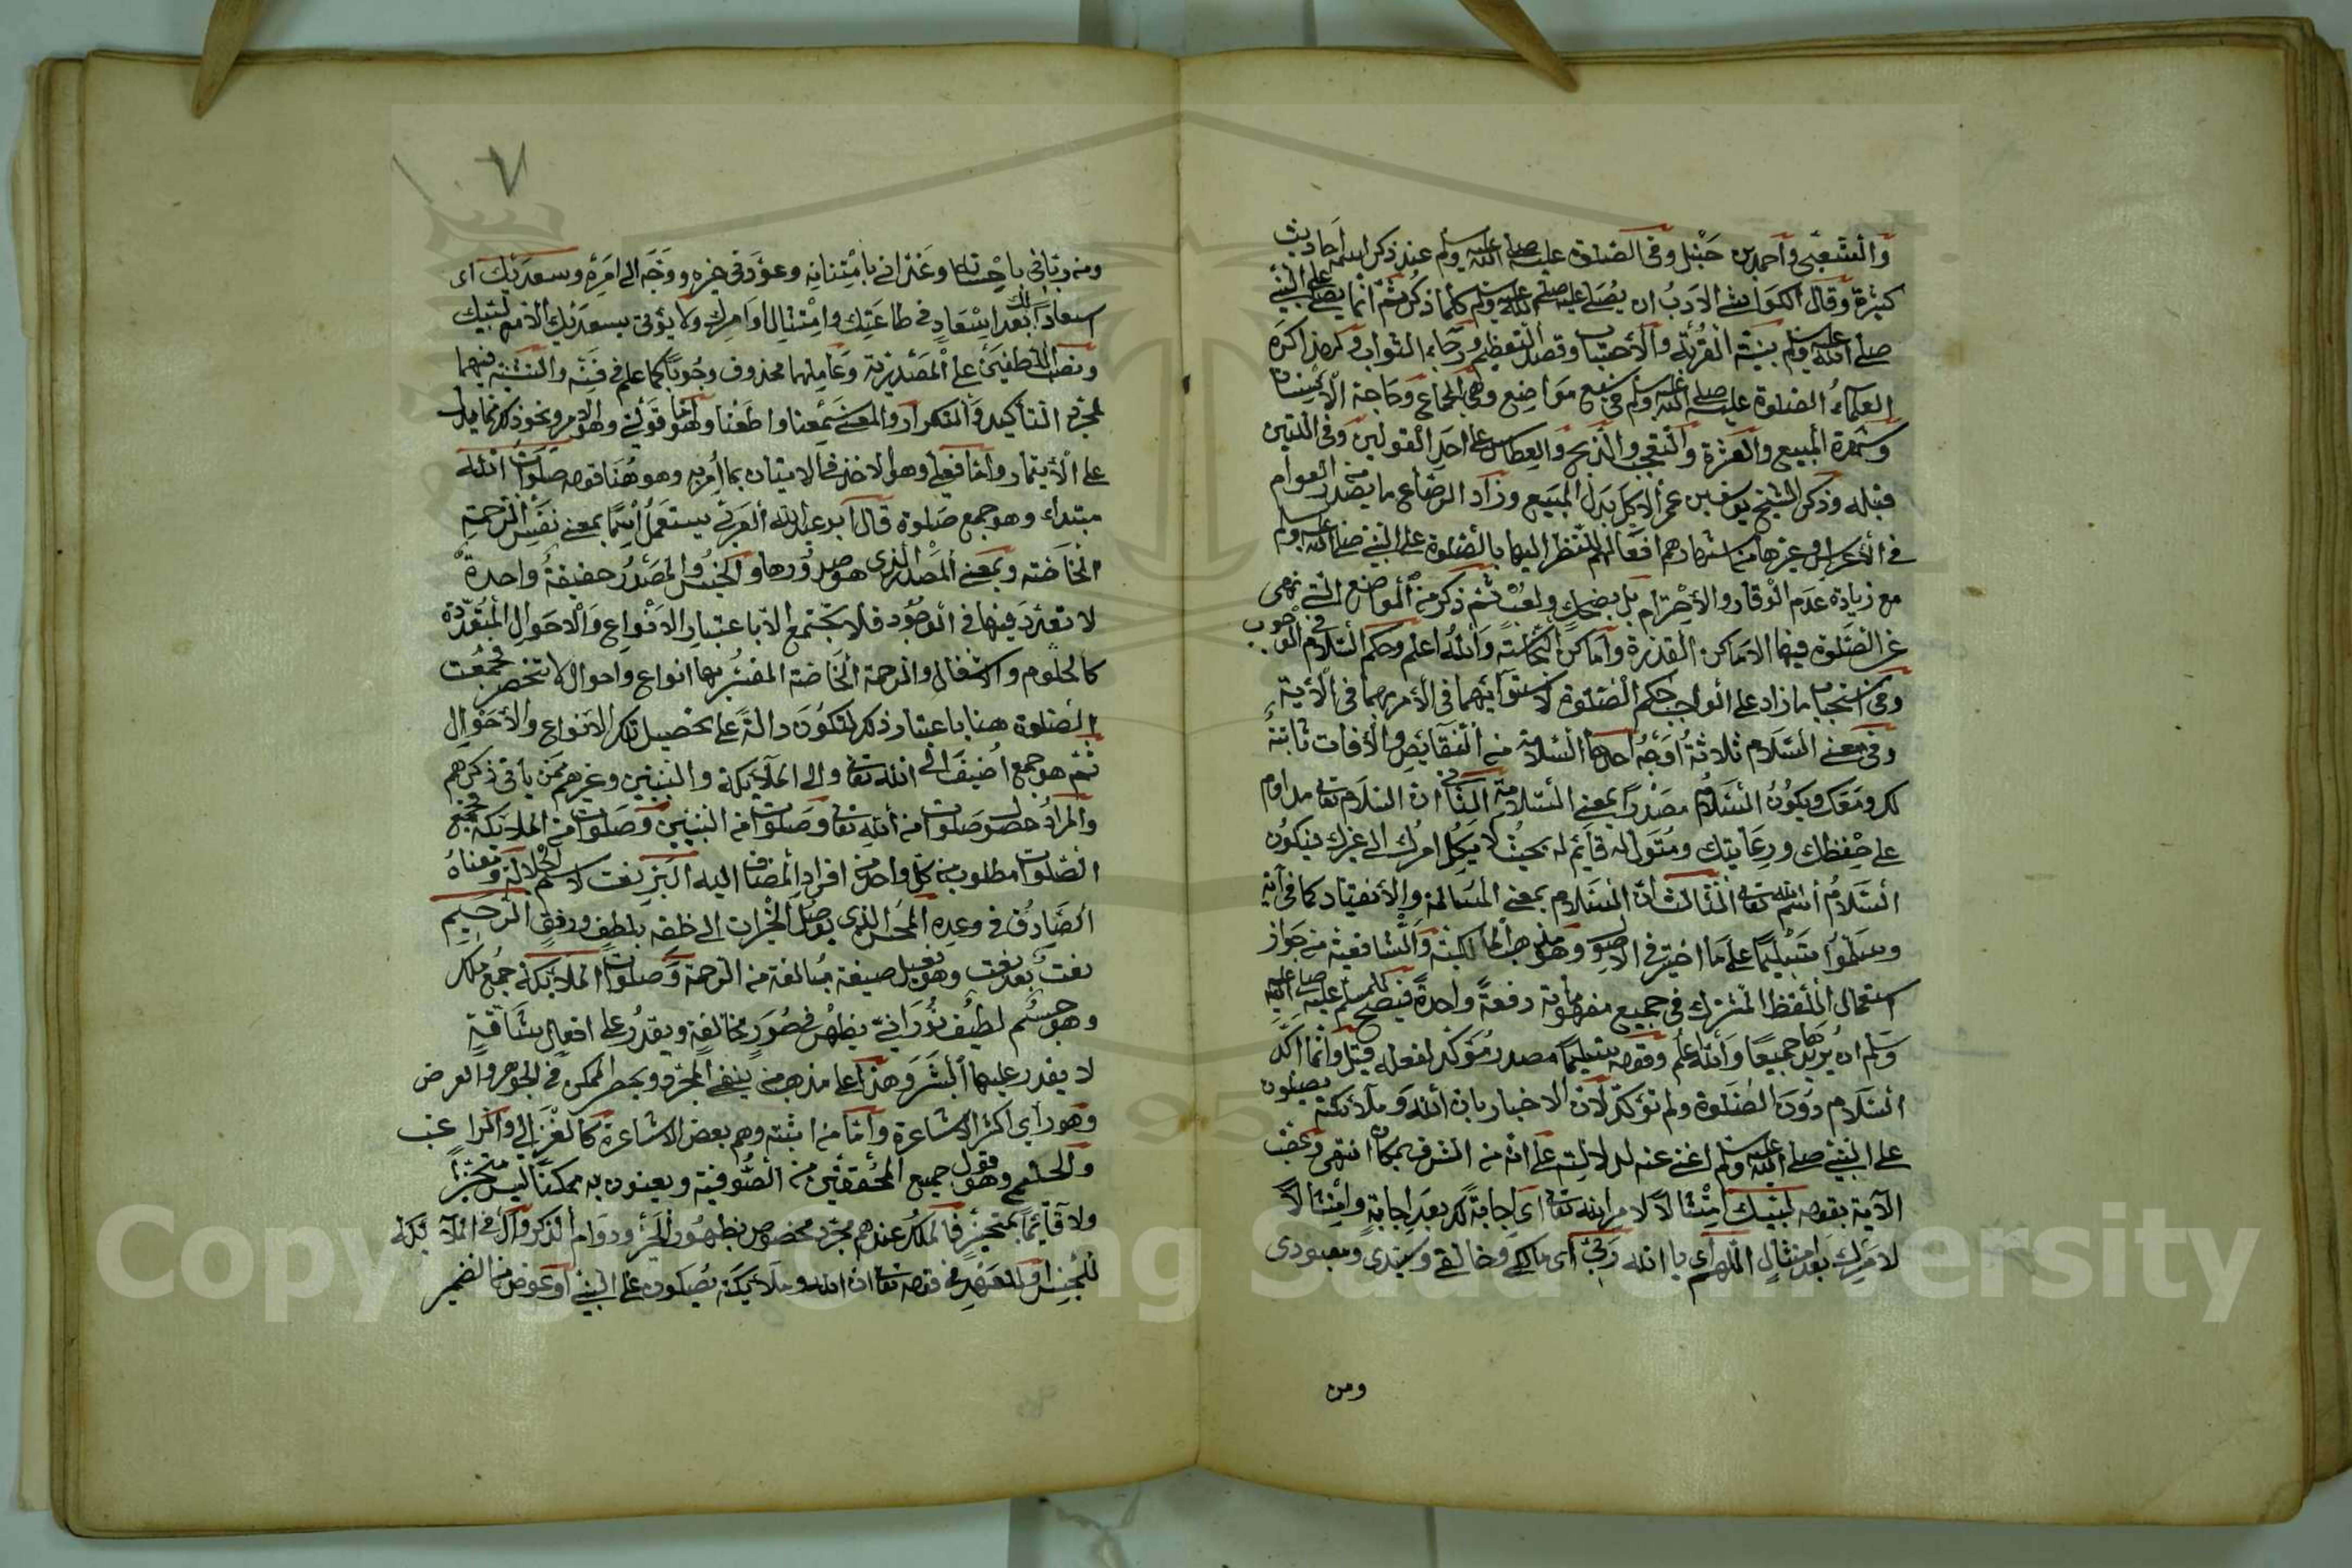 والشعبي واحمد بن حنبل وفي الصلوة عليه صلى الله عليه وسلم عند ذكر اسمه احاديث
كثيرة وقال الكواشي الادب ان يصلى عليه صلى الله عليه وسلم كلما ذكر ثم انما يصلى على النبي
صلى الله عليه وسلم بنية القربة والاحتساب وقصد التعظيم ورجاء الثواب وكره
العلماء الصلوة عليه صلى الله عليه وسلم في سبع مواضع وهي الجماع وحاجة الانسان
وشهرة المبيع والعثرة والتعجب والذبح والعطاس على احد القولين وفي
قبله وذكر الشيخ يوسف بن عمر الاكل بدل المبيع وزاد الرضاع ما يصدر من العوام
في الاعراس وغيرها من اشهادهم افعالهم للنظر اليها بالصلوة على النبي صلى الله عليه وسلم
مع زيادة عدم الوقار والاحترام بل بضحك ولعب ثم ذكر من المواضع التي نهى
عن الصلوة فيها الاماكن القذرة واماكن النجاسة والله اعلم وحكم السلام في الوجوب
وفي استحباب ما زاد على الواجب حكم الصلوة لاستوائهما في الامر بهما في الآية
وفي معنى السلام ثلاثة اوجه احدها السلامة من النقايص والافات ثابتة
لك ومعك ويكون السلام مصدرا بمعنى السلامة الثاني ان السلام مداوم
على حفظك ورعايتك ومتول له قايم له بحيث لا يكل امرك الى غيرك فيكون
السلام اسم الله تعالى الثالث ان السلام بمعنى المسالمة والانقياد كما في آية
وسلموا تسليما على ما اختير في الاصول وهو مذهب المالكية والشافعية من جواز
استعمال اللفظ المشترك في جميع مفهوماته دفعة واحدة فيصح للمسلم عليه صلى الله عليه
وسلم ان يريدها جميعا والله اعلم وقوله تسليما مصدر مؤكد لفعله قيل وانما اكد
السلام دون الصلوة ولم تؤكد لان الاخبار بان الله وملائكته يصلون
على النبي صلى الله عليه وسلم اغنى عنه لدلالته على انه من الشرف بمكان انتهى وعقب
الآية بقوله لبيك امتثالا لامر الله تعالى اي اجابة لك بعد اجابة وامتثالا
لامرك بعد امتثال اللهم اي يا الله ربي اي مالكي وخالقي وسيدي ومعبودي
ومن
٧
ومن رباني باحسانه وغذاني بامتنانه وعودني خيره ووجه الى امره وسعديك اي
اسعادا لك بعد اسعاد في طاعتك وامتثالي اوامرك ولا يؤتى بسعديك الا مع لبيك
ونصب اللفظين على المصدرية وعاملهما محذوف وجوبا كما علم في فنه والتثنية فيهما
لمجرد التأكيد والتكرار والمعنى سمعنا واطعنا وهو اما قولي وهو الامر ونحو ذلك مما يدل
على الايتمار واما فعلي وهو الاخذ في الاتيان بما امر به وهو هنا قوله صلوات الله
مبتداء وهو جمع صلوة قال ابو عبد الله العربي يستعمل اسما بمعنى نفس الرحمة
الخاصة وبمعنى المصدر الذي هو صدورها والجنس والمصدر حقيقة واحدة
لا تعدد فيها في الوجود فلا يجتمع الا باعتبار الانواع والاحوال المتعددة
كالحلوم والاشغال والرحمة الخاصة المفسر بها انواع واحوال لا تنحصر فجمعت
الصلوة هنا باعتبار ذلك لتكون دالة على تحصيل تلك الانواع والاحوال
ثم هو جمع اضيف الى الله تعالى والى الملايكة والنبيين وغيرهم ممن يأتي ذكرهم
والمراد حصول صلوات من الله تعالى وصلوات من النبيين وصلوات من الملايكة فجميع
الصلوات مطلوبة من كل واحد من افراد المضاف اليه البر نعت لاسم الجلالة ومعناه
الصادق في وعده المحسن الذي يوصل الخيرات الى خلقه بلطف ورفق الرحيم
نعت بعد نعت وهو فعيل صيغة مبالغة من الرحمة وصلوات الملائكة جمع ملك
وهو جسم لطيف نوراني يظهر في صور مختلفة ويقدر على افعال شاقة
لا يقدر عليها البشر وهذا على مذهب من ينفي المجرد ويحصر الممكن في الجوهر والعرض
وهو رأي اكثر الاشاعرة واما من اثبته وهم بعض الاشاعرة كالغزالي والراغب
والحليمي وهو قول جميع المحققين من الصوفية ويعنون به ممكنا ليس متحيزا
ولا قائما بمتحيز فالملك عندهم مجرد مخصوص بظهور الخير ودوام الذكر وال في الملائكة
للجنس او للعهد في قوله تعالى ان الله وملائكته يصلون على النبي او عوض من الضمير